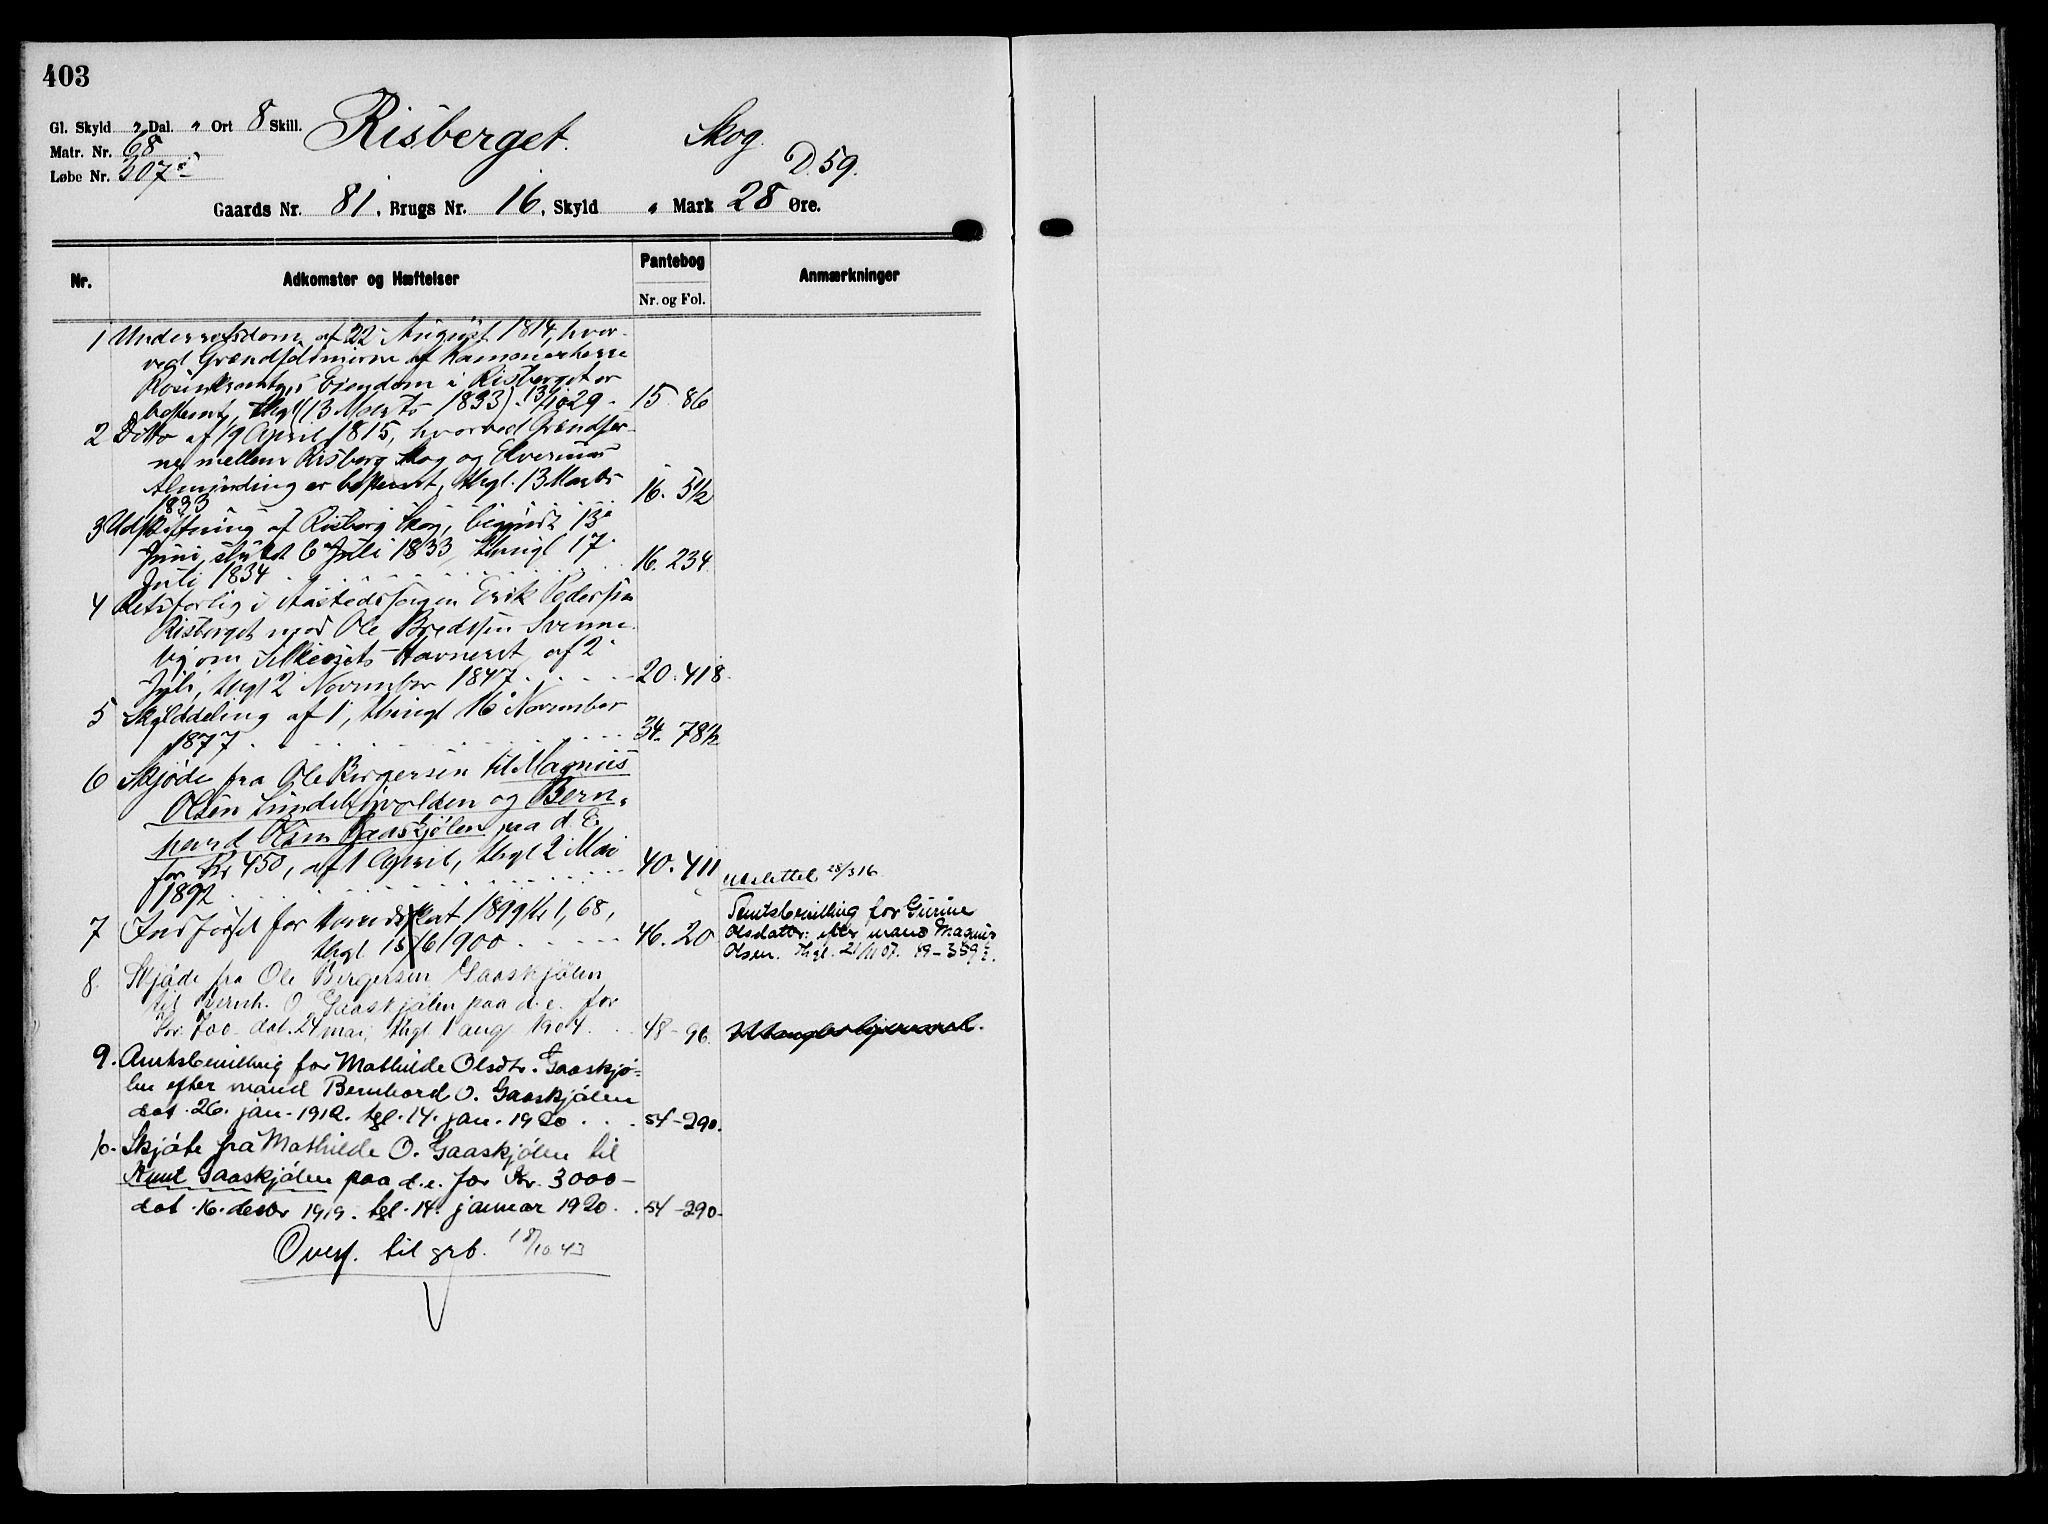 403
Gl. Skyld " Dal. " Ort 8 Skill.
Risberget. Skog.
Matr. Nr. 68
Løbe Nr. 207
D. 59.
Gaards Nr. 81, Brugs Nr. 16, Skyld " Mark 28 Øre.
Nr.
Adkomster og Hæftelser
Pantebog
Nr. og Fol.
Anmærkninger
1 Underretsdom af 22 August 1814, hvor-
ved Grændselinierne af Kammerherre
Rosenkrantz's Eiendom i Risberget er
bestemt, thgl (13 Marts 1833). 13/10 29. 15 86
2 Ditto af 19 April 1815, hvorved Grændser-
ne mellem Risberg Skog og Elverums
Almynding er bestemt, thgl. 13 Marts
1833 16. 51/2
3 Udskiftning af Risberg Skog, begyndt 13
Juni, sluttet 6 Juli 1833, thingl 17
Juli 1834 16. 234
4 Retsforlig i Aastedssagen Erik Pedersen
Risberget mod Ole Bredesen Svenne-
by om Havneret af 2
Juli, thgl 2 November 1847 20. 418
5 Skylddeling af 1, thingl 16 November
1877 34. 78 1/2
6 Skjøde fra Ole Birgersen til Magnus
Olsen og Bern-
hard Olsen Gaaskjølen paa d. E.
for Kr 450, af 1 April, thgl 2 Mai
1892 40. 411
udslettet 28/3 16
7 Indførsel for 1899 Kr 1,68,
thgl 15/6 1900 46. 20
Amtsbevilling for Gurine
Olsdatter efter mand Magnus
Olsen. Thgl. 21/11 07. 49-359
8. Skjøde fra Ole Bergersen Gaaskjølen
til Bernh. O. Gaaskjølen paa d. e. for
Kr. 700. dat. 24 mai, thgl 1 aug 1904 48-96.
9. Amtsbevilling for Mathilde Olsdtr. Gaaskjø-
len efter mand Bernhard O. Gaaskjølen
dat. 26. jan. 1912. tgl. 14. jan. 1920 54-290.
10. Skjøte fra Mathilde O. Gaaskjølen til
Knut Gaaskjølen paa d. e. for Kr. 3000-
dat. 16. desbr 1919. tgl. 14. januar 1920. 54-290.
Overf. til grb. 18/10 43